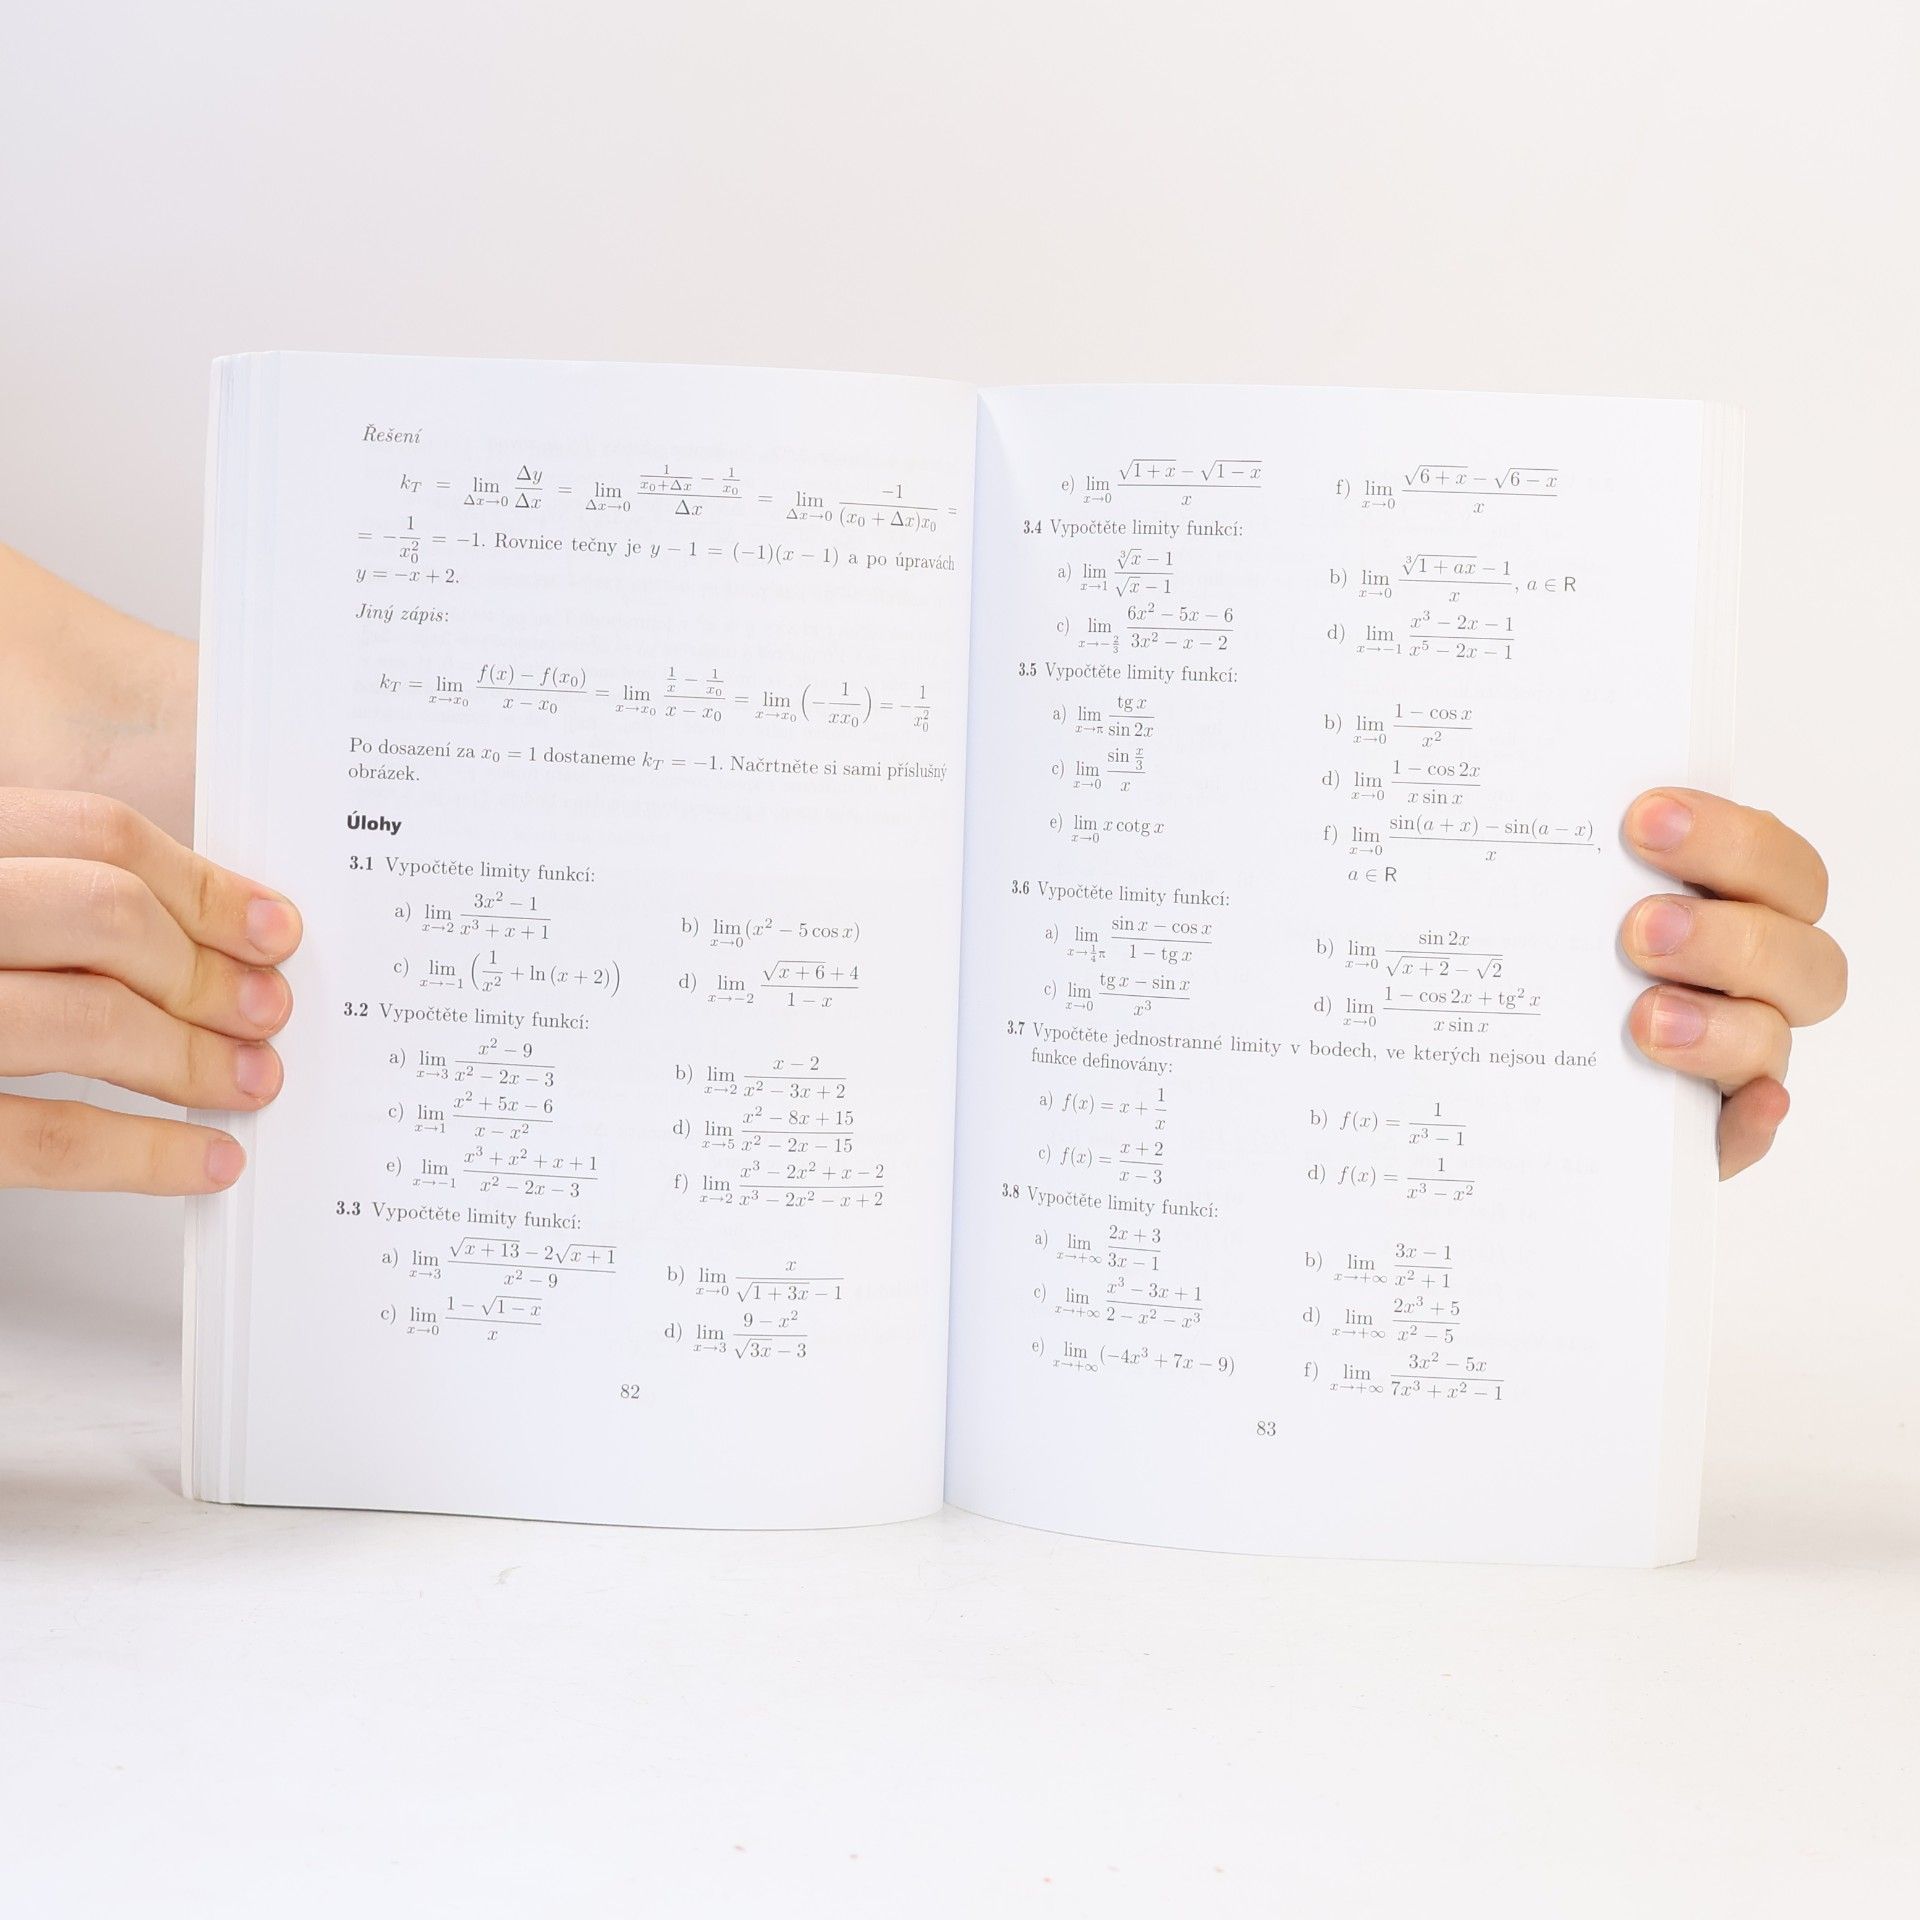 Řešení
k_T = lim_{Δx→0} Δy/Δx = lim_{Δx→0} (1/(x_0+Δx) − 1/x_0)/Δx = lim_{Δx→0} −1/((x_0 + Δx)x_0) =
= −1/x_0^2 = −1. Rovnice tečny je y − 1 = (−1)(x − 1) a po úpravách
y = −x + 2.
Jiný zápis:
k_T = lim_{x→x_0} (f(x) − f(x_0))/(x − x_0) = lim_{x→x_0} (1/x − 1/x_0)/(x − x_0) = lim_{x→x_0} (−1/(xx_0)) = −1/x_0^2
Po dosazení za x_0 = 1 dostaneme k_T = −1. Načrtněte si sami příslušný
obrázek.
Úlohy
3.1 Vypočtěte limity funkcí:
a) lim_{x→2} (3x^2 − 1)/(x^3 + x + 1) b) lim_{x→0} (x^2 − 5 cos x)
c) lim_{x→−1} (1/x^2 + ln (x + 2)) d) lim_{x→−2} (√(x + 6) + 4)/(1 − x)
3.2 Vypočtěte limity funkcí:
a) lim_{x→3} (x^2 − 9)/(x^2 − 2x − 3) b) lim_{x→2} (x − 2)/(x^2 − 3x + 2)
c) lim_{x→1} (x^2 + 5x − 6)/(x − x^2) d) lim_{x→5} (x^2 − 8x + 15)/(x^2 − 2x − 15)
e) lim_{x→−1} (x^3 + x^2 + x + 1)/(x^2 − 2x − 3) f) lim_{x→2} (x^3 − 2x^2 + x − 2)/(x^3 − 2x^2 − x + 2)
3.3 Vypočtěte limity funkcí:
a) lim_{x→3} (√(x + 13) − 2√(x + 1))/(x^2 − 9) b) lim_{x→0} x/(√(1 + 3x) − 1)
c) lim_{x→0} (1 − √(1 − x))/x d) lim_{x→3} (9 − x^2)/(√(3x) − 3)
82
e) lim_{x→0} (√(1 + x) − √(1 − x))/x f) lim_{x→0} (√(6 + x) − √(6 − x))/x
3.4 Vypočtěte limity funkcí:
a) lim_{x→1} (∛x − 1)/(√x − 1) b) lim_{x→0} (∛(1 + ax) − 1)/x, a ∈ R
c) lim_{x→−2/3} (6x^2 − 5x − 6)/(3x^2 − x − 2) d) lim_{x→−1} (x^3 − 2x − 1)/(x^5 − 2x − 1)
3.5 Vypočtěte limity funkcí:
a) lim_{x→π} tg x/sin 2x b) lim_{x→0} (1 − cos x)/x^2
c) lim_{x→0} (sin x/3)/x d) lim_{x→0} (1 − cos 2x)/(x sin x)
e) lim_{x→0} x cotg x f) lim_{x→0} (sin(a + x) − sin(a − x))/x,
a ∈ R
3.6 Vypočtěte limity funkcí:
a) lim_{x→1/4 π} (sin x − cos x)/(1 − tg x) b) lim_{x→0} sin 2x/(√(x + 2) − √2)
c) lim_{x→0} (tg x − sin x)/x^3 d) lim_{x→0} (1 − cos 2x + tg^2 x)/(x sin x)
3.7 Vypočtěte jednostranné limity v bodech, ve kterých nejsou dané
funkce definovány:
a) f(x) = x + 1/x b) f(x) = 1/(x^3 − 1)
c) f(x) = (x + 2)/(x − 3) d) f(x) = 1/(x^3 − x^2)
3.8 Vypočtěte limity funkcí:
a) lim_{x→+∞} (2x + 3)/(3x − 1) b) lim_{x→+∞} (3x − 1)/(x^2 + 1)
c) lim_{x→+∞} (x^3 − 3x + 1)/(2 − x^2 − x^3) d) lim_{x→+∞} (2x^3 + 5)/(x^2 − 5)
e) lim_{x→+∞} (−4x^3 + 7x − 9) f) lim_{x→+∞} (3x^2 − 5x)/(7x^3 + x^2 − 1)
83